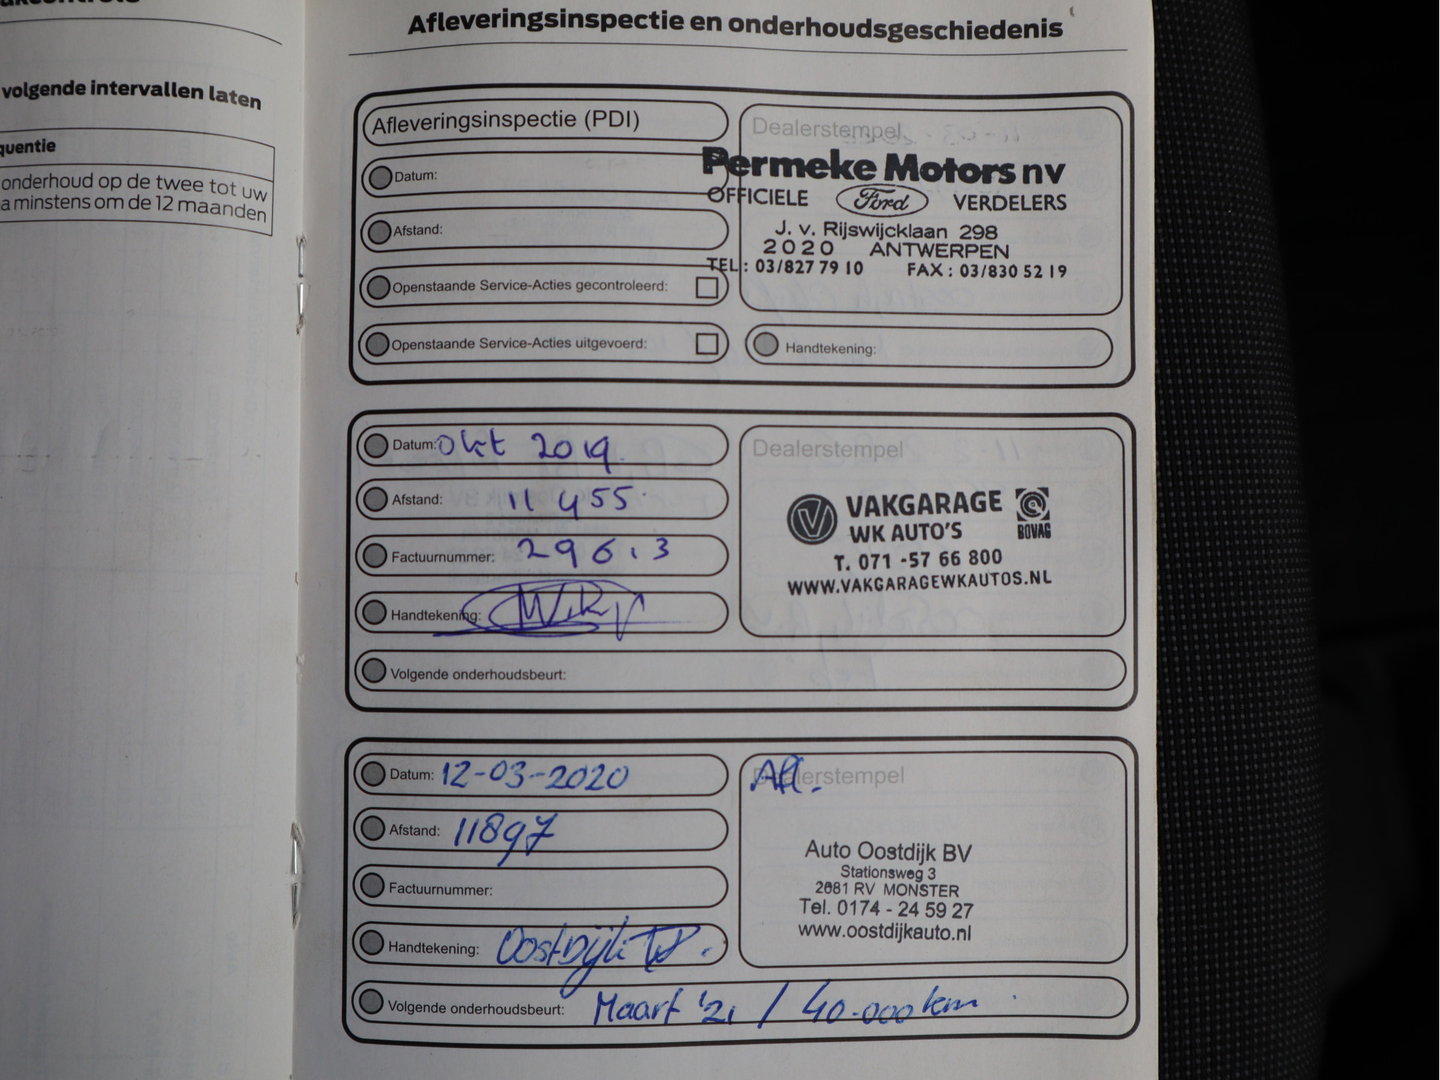 volgende intervallen laten
quentie
onderhoud op de twee tot uw
a minstens om de 12 maanden
Afleveringsinspectie en onderhoudsgeschiedenis
Afleveringsinspectie (PDI)
Datum:
Afstand:
Openstaande Service-Acties gecontroleerd:
Openstaande Service-Acties uitgevoerd:
Dealerstempel
Permeke Motors nv
OFFICIELE Ford VERDELERS
J. v. Rijswijcklaan 298
2020 ANTWERPEN
TEL: 03/827 79 10 FAX: 03/830 52 19
Handtekening:
Datum: okt 2019.
Afstand: 11455
Factuurnummer: 29613
Handtekening:
Volgende onderhoudsbeurt:
Dealerstempel
VAKGARAGE
WK AUTO'S
BOVAG
T. 071 -57 66 800
WWW.VAKGARAGEWKAUTOS.NL
Datum: 12-03-2020
Afstand: 11897
Factuurnummer:
Handtekening: Oostdijk
Volgende onderhoudsbeurt: Maart '21 / 40.000 km
Dealerstempel
Afl.
Auto Oostdijk BV
Stationsweg 3
2681 RV MONSTER
Tel. 0174 - 24 59 27
www.oostdijkauto.nl